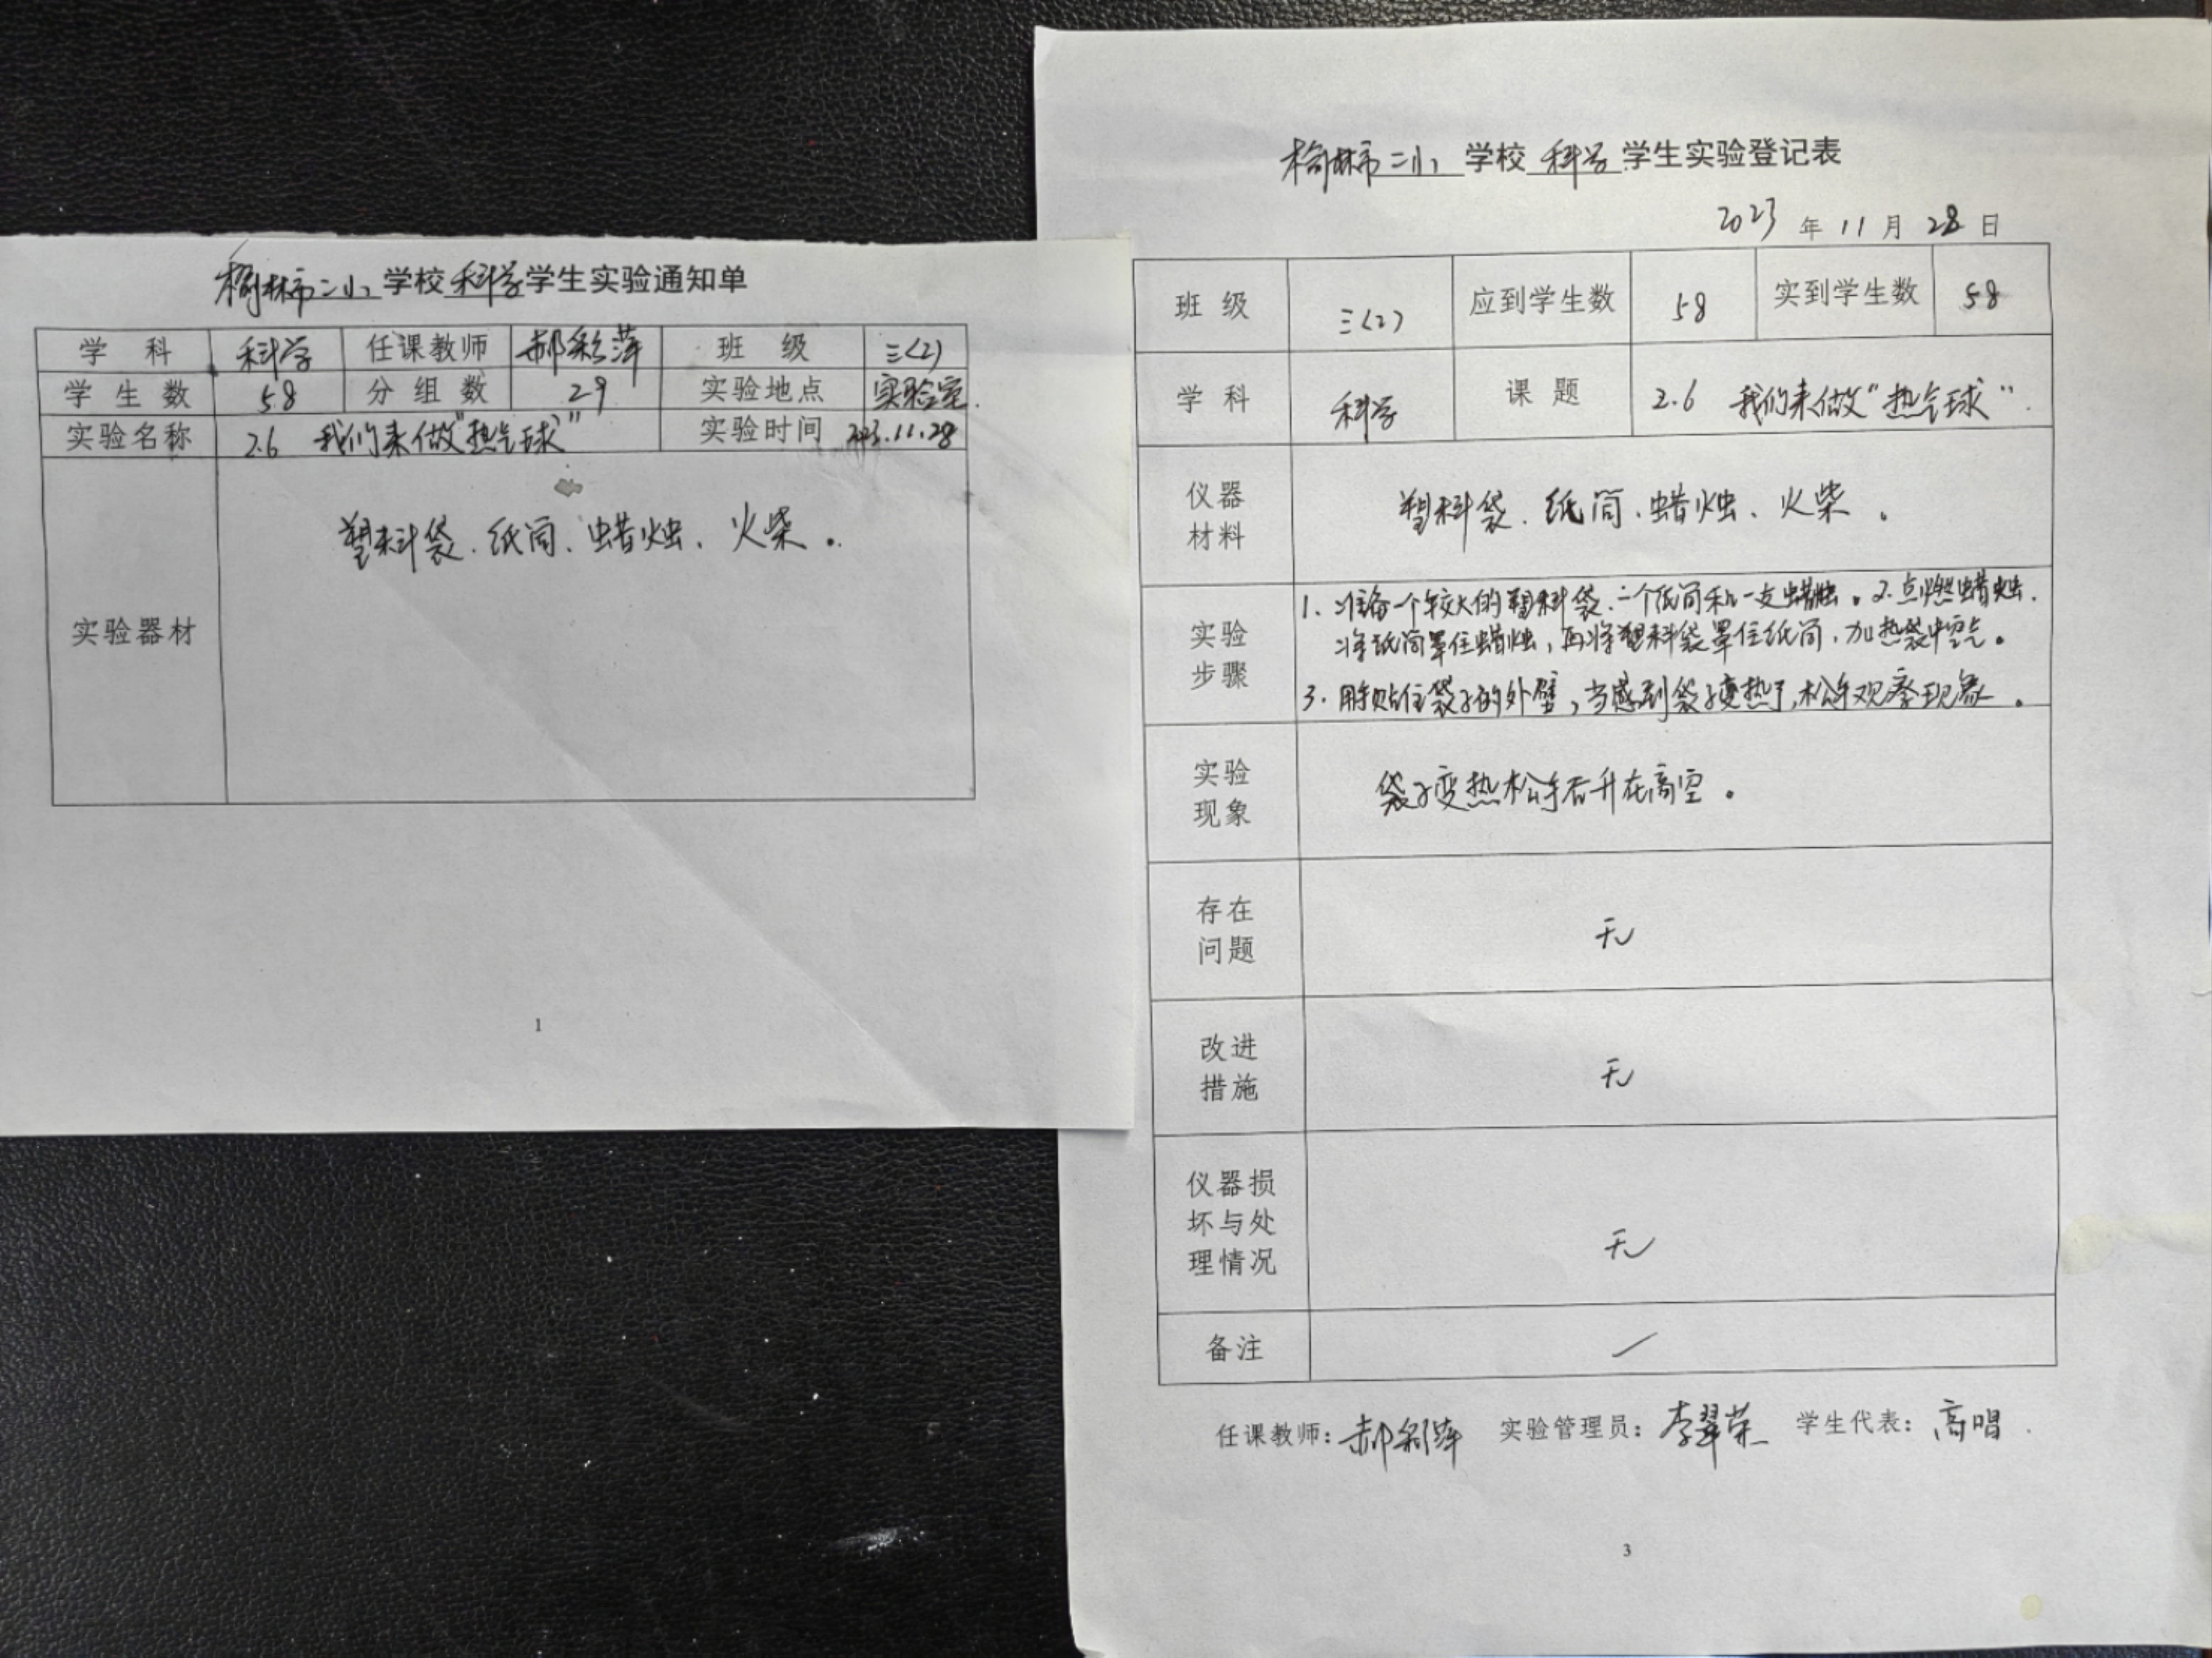 榆林市二小 学校 科学 学生实验通知单
学 科 科学 任课教师 郝彩萍 班 级 三(2)
学 生 数 58 分 组 数 29 实验地点 实验室.
实验名称 2.6 我们来做“热气球” 实验时间 2023.11.28
实验器材 塑料袋、纸筒、蜡烛、火柴。
1
榆林市二小 学校 科学 学生实验登记表
2023 年 11 月 28 日
班 级 三(2) 应到学生数 58 实到学生数 58
学 科 科学 课 题 2.6 我们来做“热气球”.
仪器
材料
塑料袋、纸筒、蜡烛、火柴。
实验
步骤
1. 准备一个较大的塑料袋、一个纸筒和一支蜡烛。2.点燃蜡烛.
将纸筒罩住蜡烛,再将塑料袋罩住纸筒,加热袋中空气。
3. 用手贴住袋子的外壁,当感到袋子变热了,松手观察现象。
实验
现象
袋子变热松手后升在高空。
存在
问题
无
改进
措施
无
仪器损
坏与处
理情况
无
备注
任课教师:郝彩萍 实验管理员:李翠荣 学生代表:高唱
3